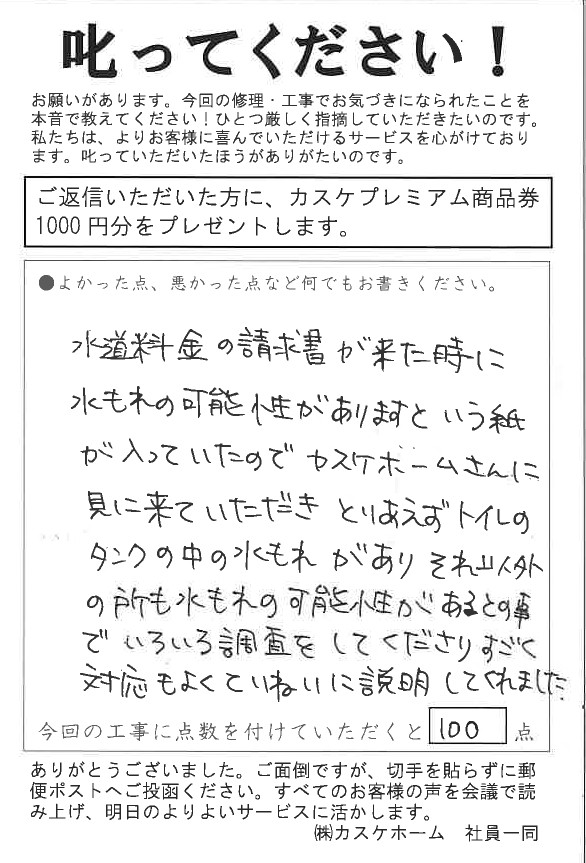 叱ってください！
お願いがあります。今回の修理・工事でお気づきになられたことを
本音で教えてください！ひとつ厳しく指摘していただきたいのです。
私たちは、よりお客様に喜んでいただけるサービスを心がけており
ます。叱っていただいたほうがありがたいのです。
ご返信いただいた方に、カスケプレミアム商品券
1000円分をプレゼントします。
●よかった点、悪かった点など何でもお書きください。
水道料金の請求書が来た時に
水もれの可能性がありますという紙
が入っていたのでカスケホームさんに
見に来ていただき とりあえずトイレの
タンクの中の水もれがあり それ以外
の所も水もれの可能性があるとの事
でいろいろ調査をしてくださりすごく
対応もよくていねいに説明してくれました
今回の工事に点数を付けていただくと 100 点
ありがとうございました。ご面倒ですが、切手を貼らずに郵
便ポストへご投函ください。すべてのお客様の声を会議で読
み上げ、明日のよりよいサービスに活かします。
㈱カスケホーム 社員一同